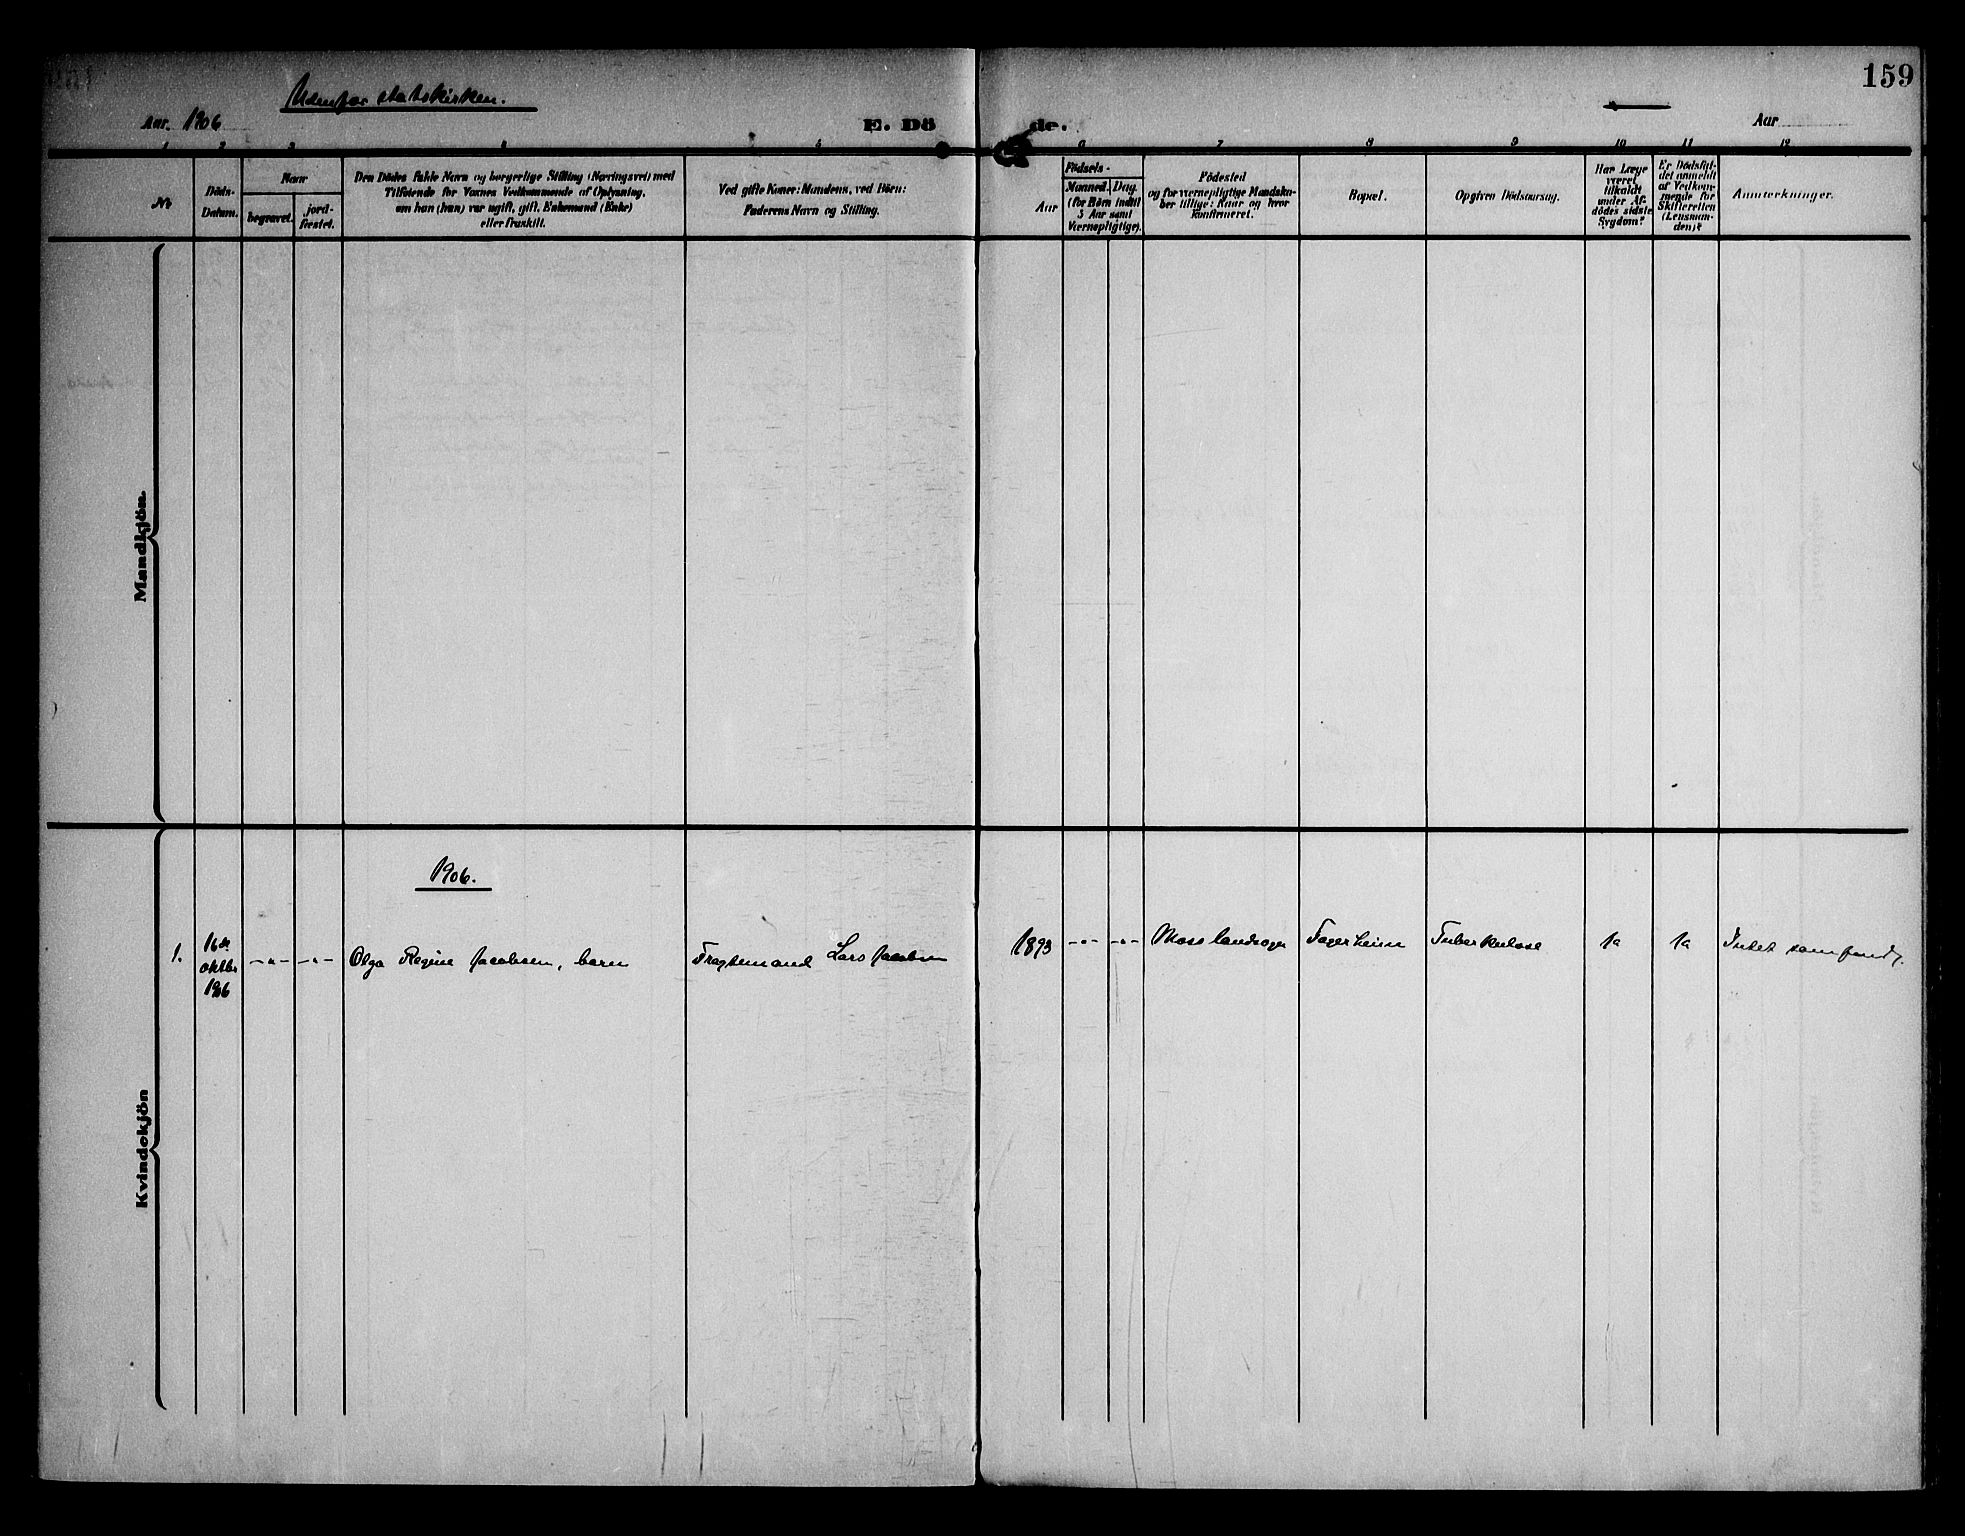 159
Udenfor statskirken.
Aar. 1906
E. Dö de.
Aar
1 2 3 4 5 6 7 8 9 10 11 12
No
Döds-
Datum.
Naar
begravet.
jord-
fæstet.
Den Dödes fulde Navn og borgerlige Stilling (Næringsvei) med
Tilföiende for Voxnes Vedkommende af Oplysning,
om han (hun) var ugift, gift, Enkemand (Enke)
eller fraskilt.
Ved gifte Koner: Mandens, ved Börn:
Faderens Navn og Stilling.
Aar
Födsels-
Maaned. Dag.
(for Börn indtil
5 Aar samt
Værnepligtige).
Födested
og for værnepligtige Mandska-
ber tillige: Naar og hvor
konfirmeret.
Bopæl.
Opgiven Dödsaarsag.
Har Læge
været
tilkaldt
under Af-
dödes sidste
Sygdom?
Er Dödsfal-
det anmeldt
af Vedkom-
mende for
Skifteretten
(Lensman-
den)?
Anmærkninger.
Mandkjön.
Kvindekjön
1906.
1. 16de oktbr 1906 -"- -"- Olga Regine Jacobsen, barn Fragtemand Lars Jacobsen 1893 -"- -"- Moss landsogn Fagerheim Tuberkulose Ja Ja Intet samfund.